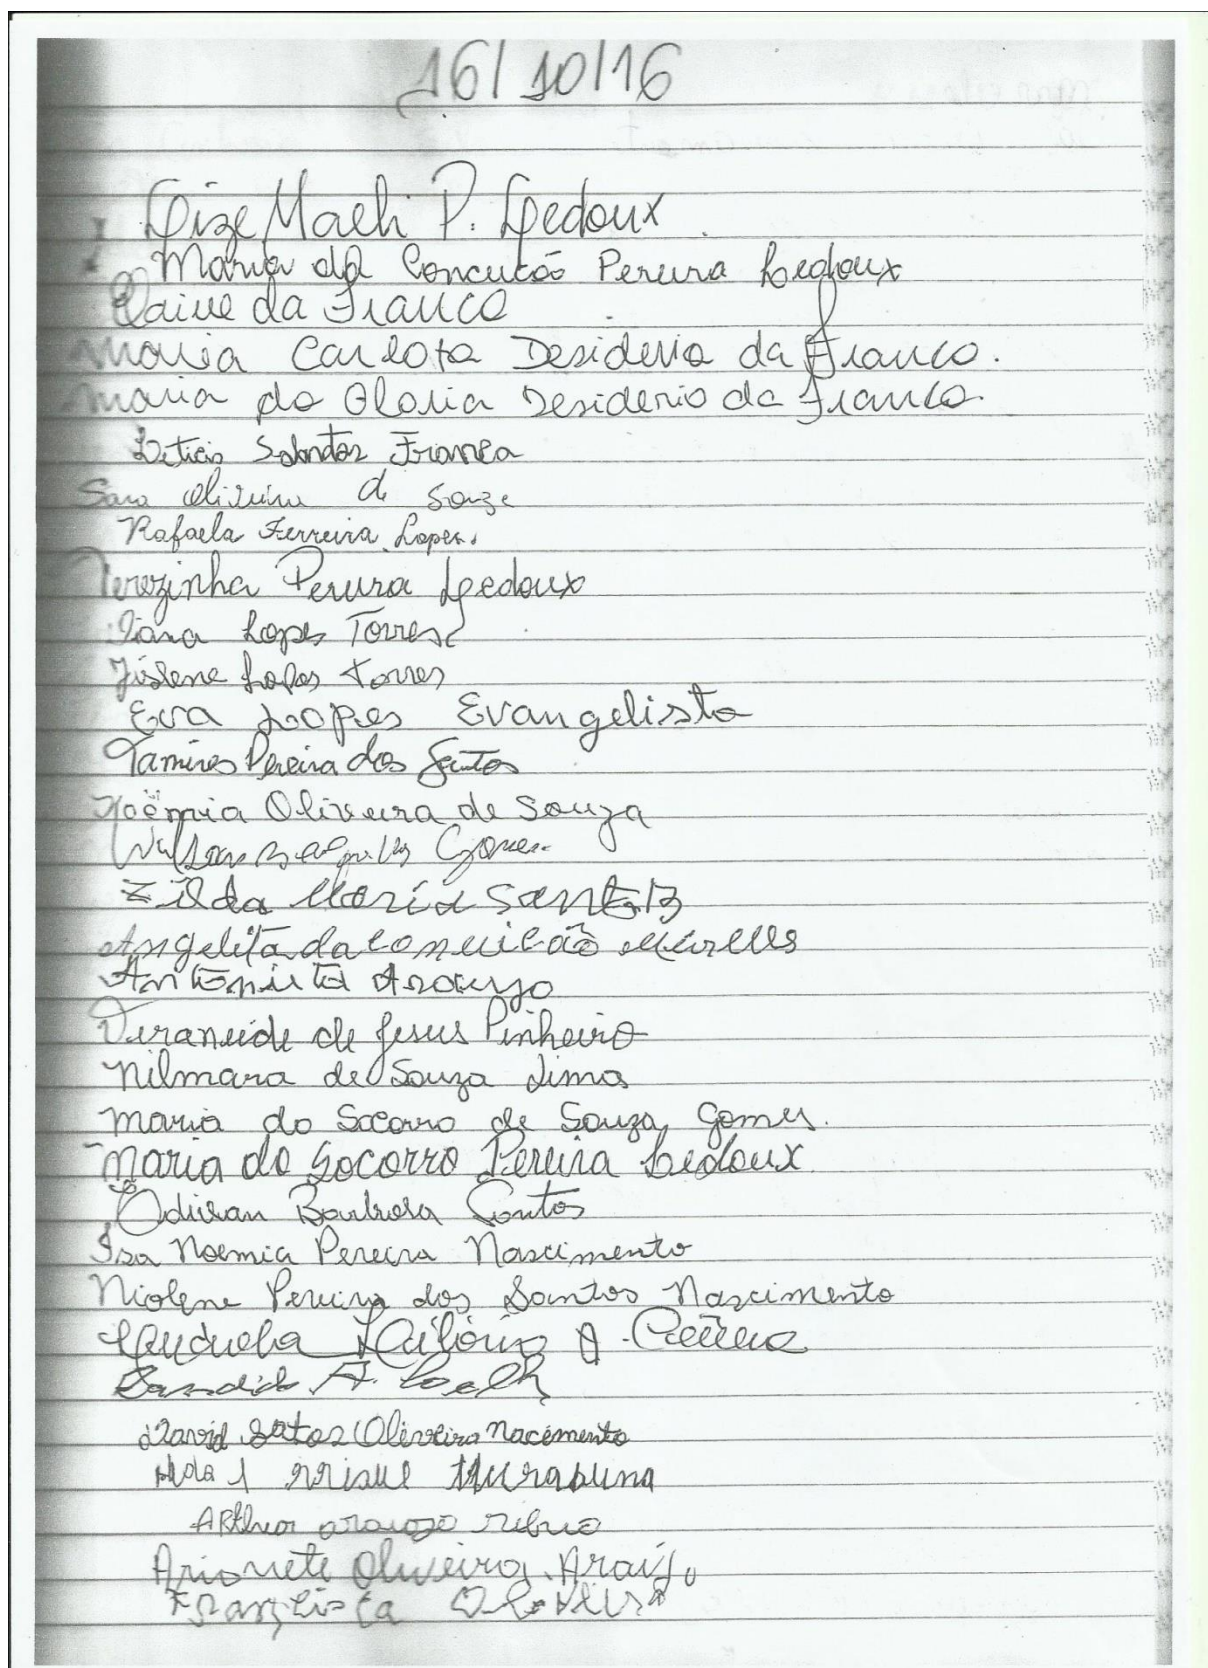 16/10/16
Gize Maeli P. Ledoux
Maria da Concucão Pereira Ledoux
da Franco
Maria Carlota Desiderio da Franco.
Maria da Gloria Desiderio da Franco.
Leticia Franca
Sara Oliveira de Souza
Rafaela Ferreira Lopes.
Terezinha Pereira Ledoux
Iana Lopes Torres
Jislene Lopes Torres
Eva Lopes Evangelista
Tamires Pereira dos Santos
Noêmia Oliveira de Souza
Gomes
Zilda Maria Santos
Angelita da
Antonieta Araujo
Veraneide de Jesus Pinheiro
Nilmara de Souza Lima
Maria do Socorro de Souza Gomes.
Maria do Socorro Pereira Ledoux
Barbosa Santos
Isa Noemia Pereira Nascimento
Niolene Pereira dos Santos Nascimento
A.
A. Coelh
David Satos Oliveira Nacimento
Arthur araujo
Arionete Oliveira Araújo